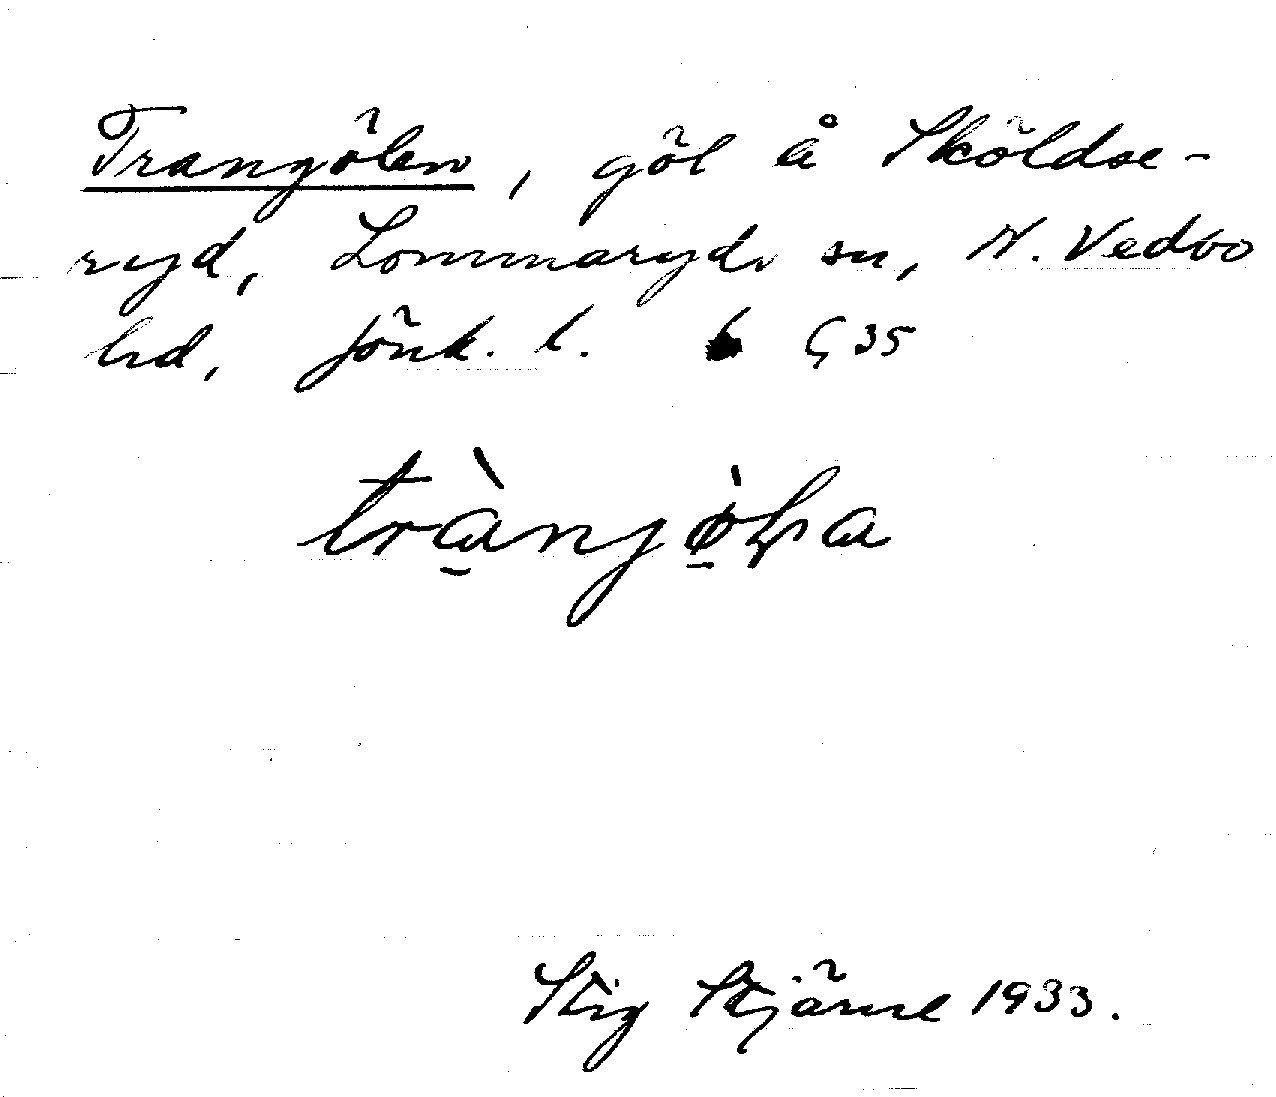 Trangölen, göl å Sköldse-
ryd, Lommaryds sn, N. Vedbo
hd, Jönk. l. G 35
Stig Stjärne 1933.